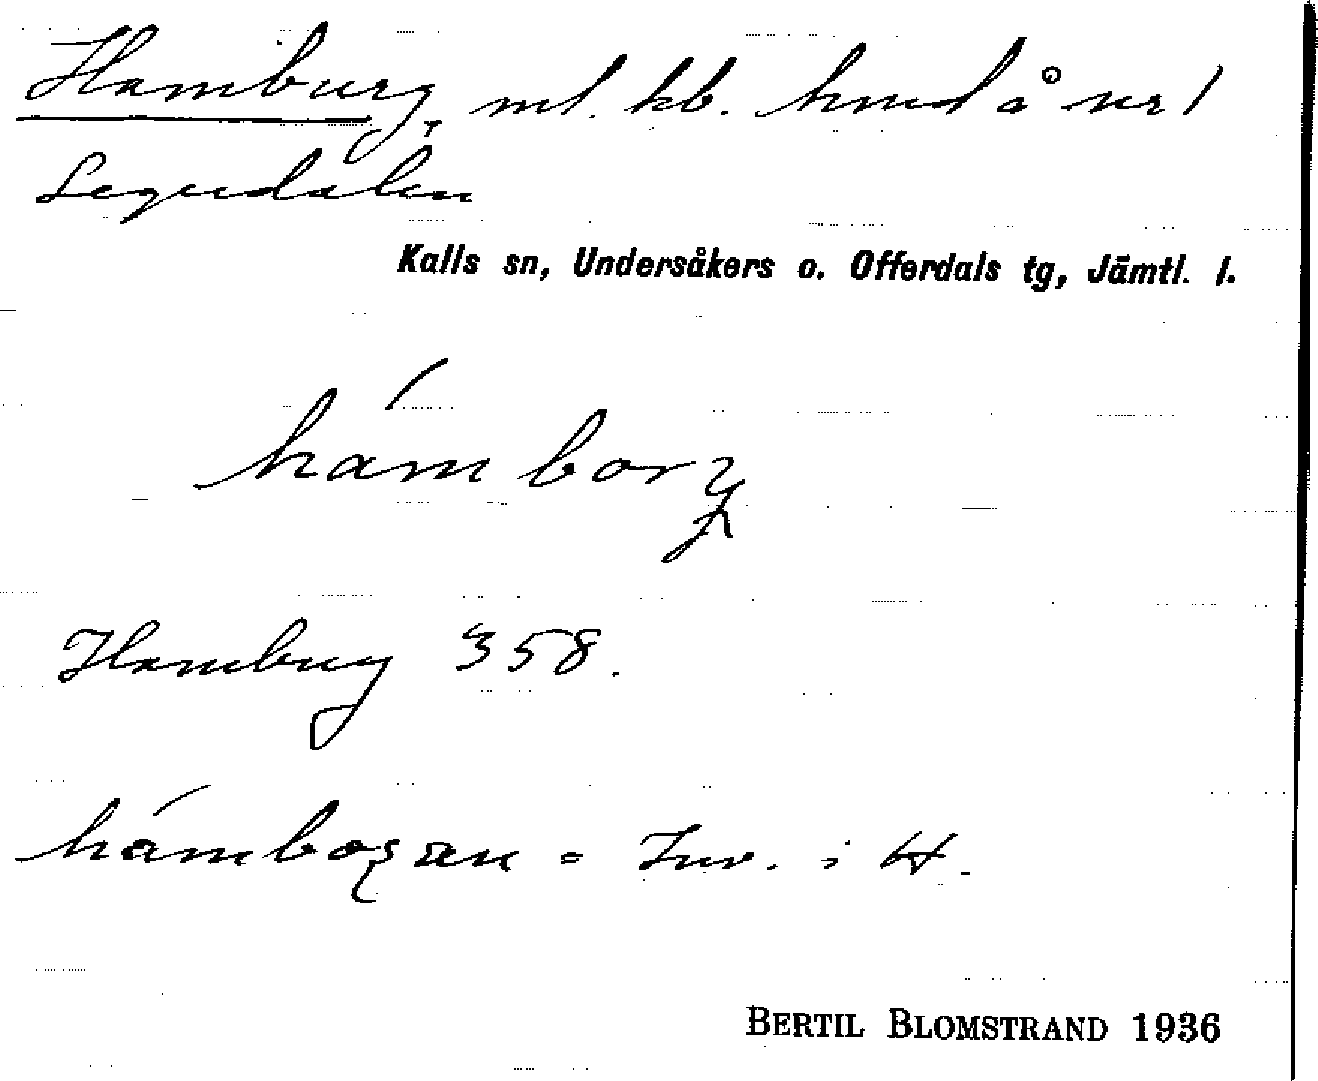 Hamburg, ml. kb. hmd å nr 1
Segudalen
Kalls sn, Undersåkers o. Offerdals tg, Jämtl. l.
hámborg
Hamburg 358.
= Inv. i H.
BERTIL BLOMSTRAND 1936